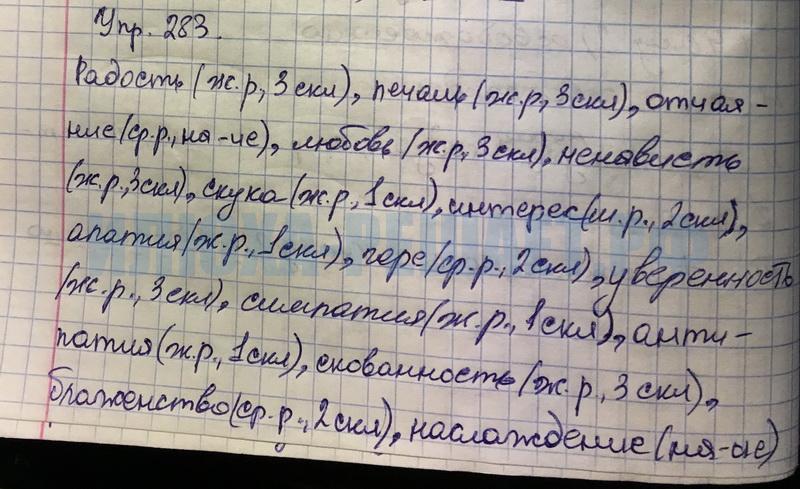 Упр. 283.
Радость (ж.р, 3 скл), печаль (ж.р, 3 скл), отчая-
ние (ср.р., на -ие), любовь (ж.р, 3 скл), ненависть
(ж.р., 3 скл), скука (ж.р., 1 скл), интерес (м.р., 2 скл),
апатия (ж.р., 1 скл), горе (ср.р., 2 скл), уверенность
(ж.р., 3 скл), симпатия (ж.р., 1 скл), анти-
патия (ж.р., 1 скл), скованность (ж.р, 3 скл),
блаженство (ср.р., 2 скл), наслаждение (на -ие)